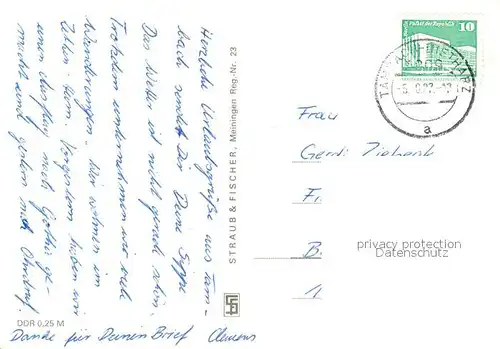 Herzliche Urlaubsgrüße aus Tam-
bach sendet Dir Deine Sippe
Das Wetter ist nicht gerade schön.
Trotzdem unternehmen wir viele
Wanderungen. Wir wohnen im
Zelten. Vorgestern haben wir
einen Ausflug nach Gotha ge-
macht und gestern nach Ohrdruf.
Danke für Deinen Brief Clemens
DDR 0,25 M
STRAUB & FISCHER, Meiningen Reg.-Nr. 23
10
TAMBACH-DIETHARZ
a
Frau
Gerdi
Fr.
B.
1
privacy protection
Datenschutz